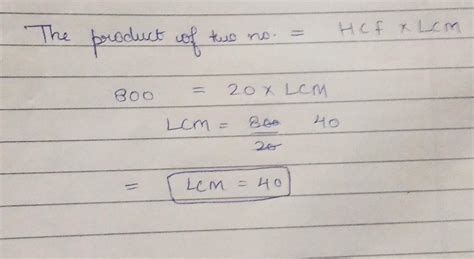 The product of two no. = HCF x LCM
800 = 20 x LCM
LCM = 800 40
20
= LCM = 40